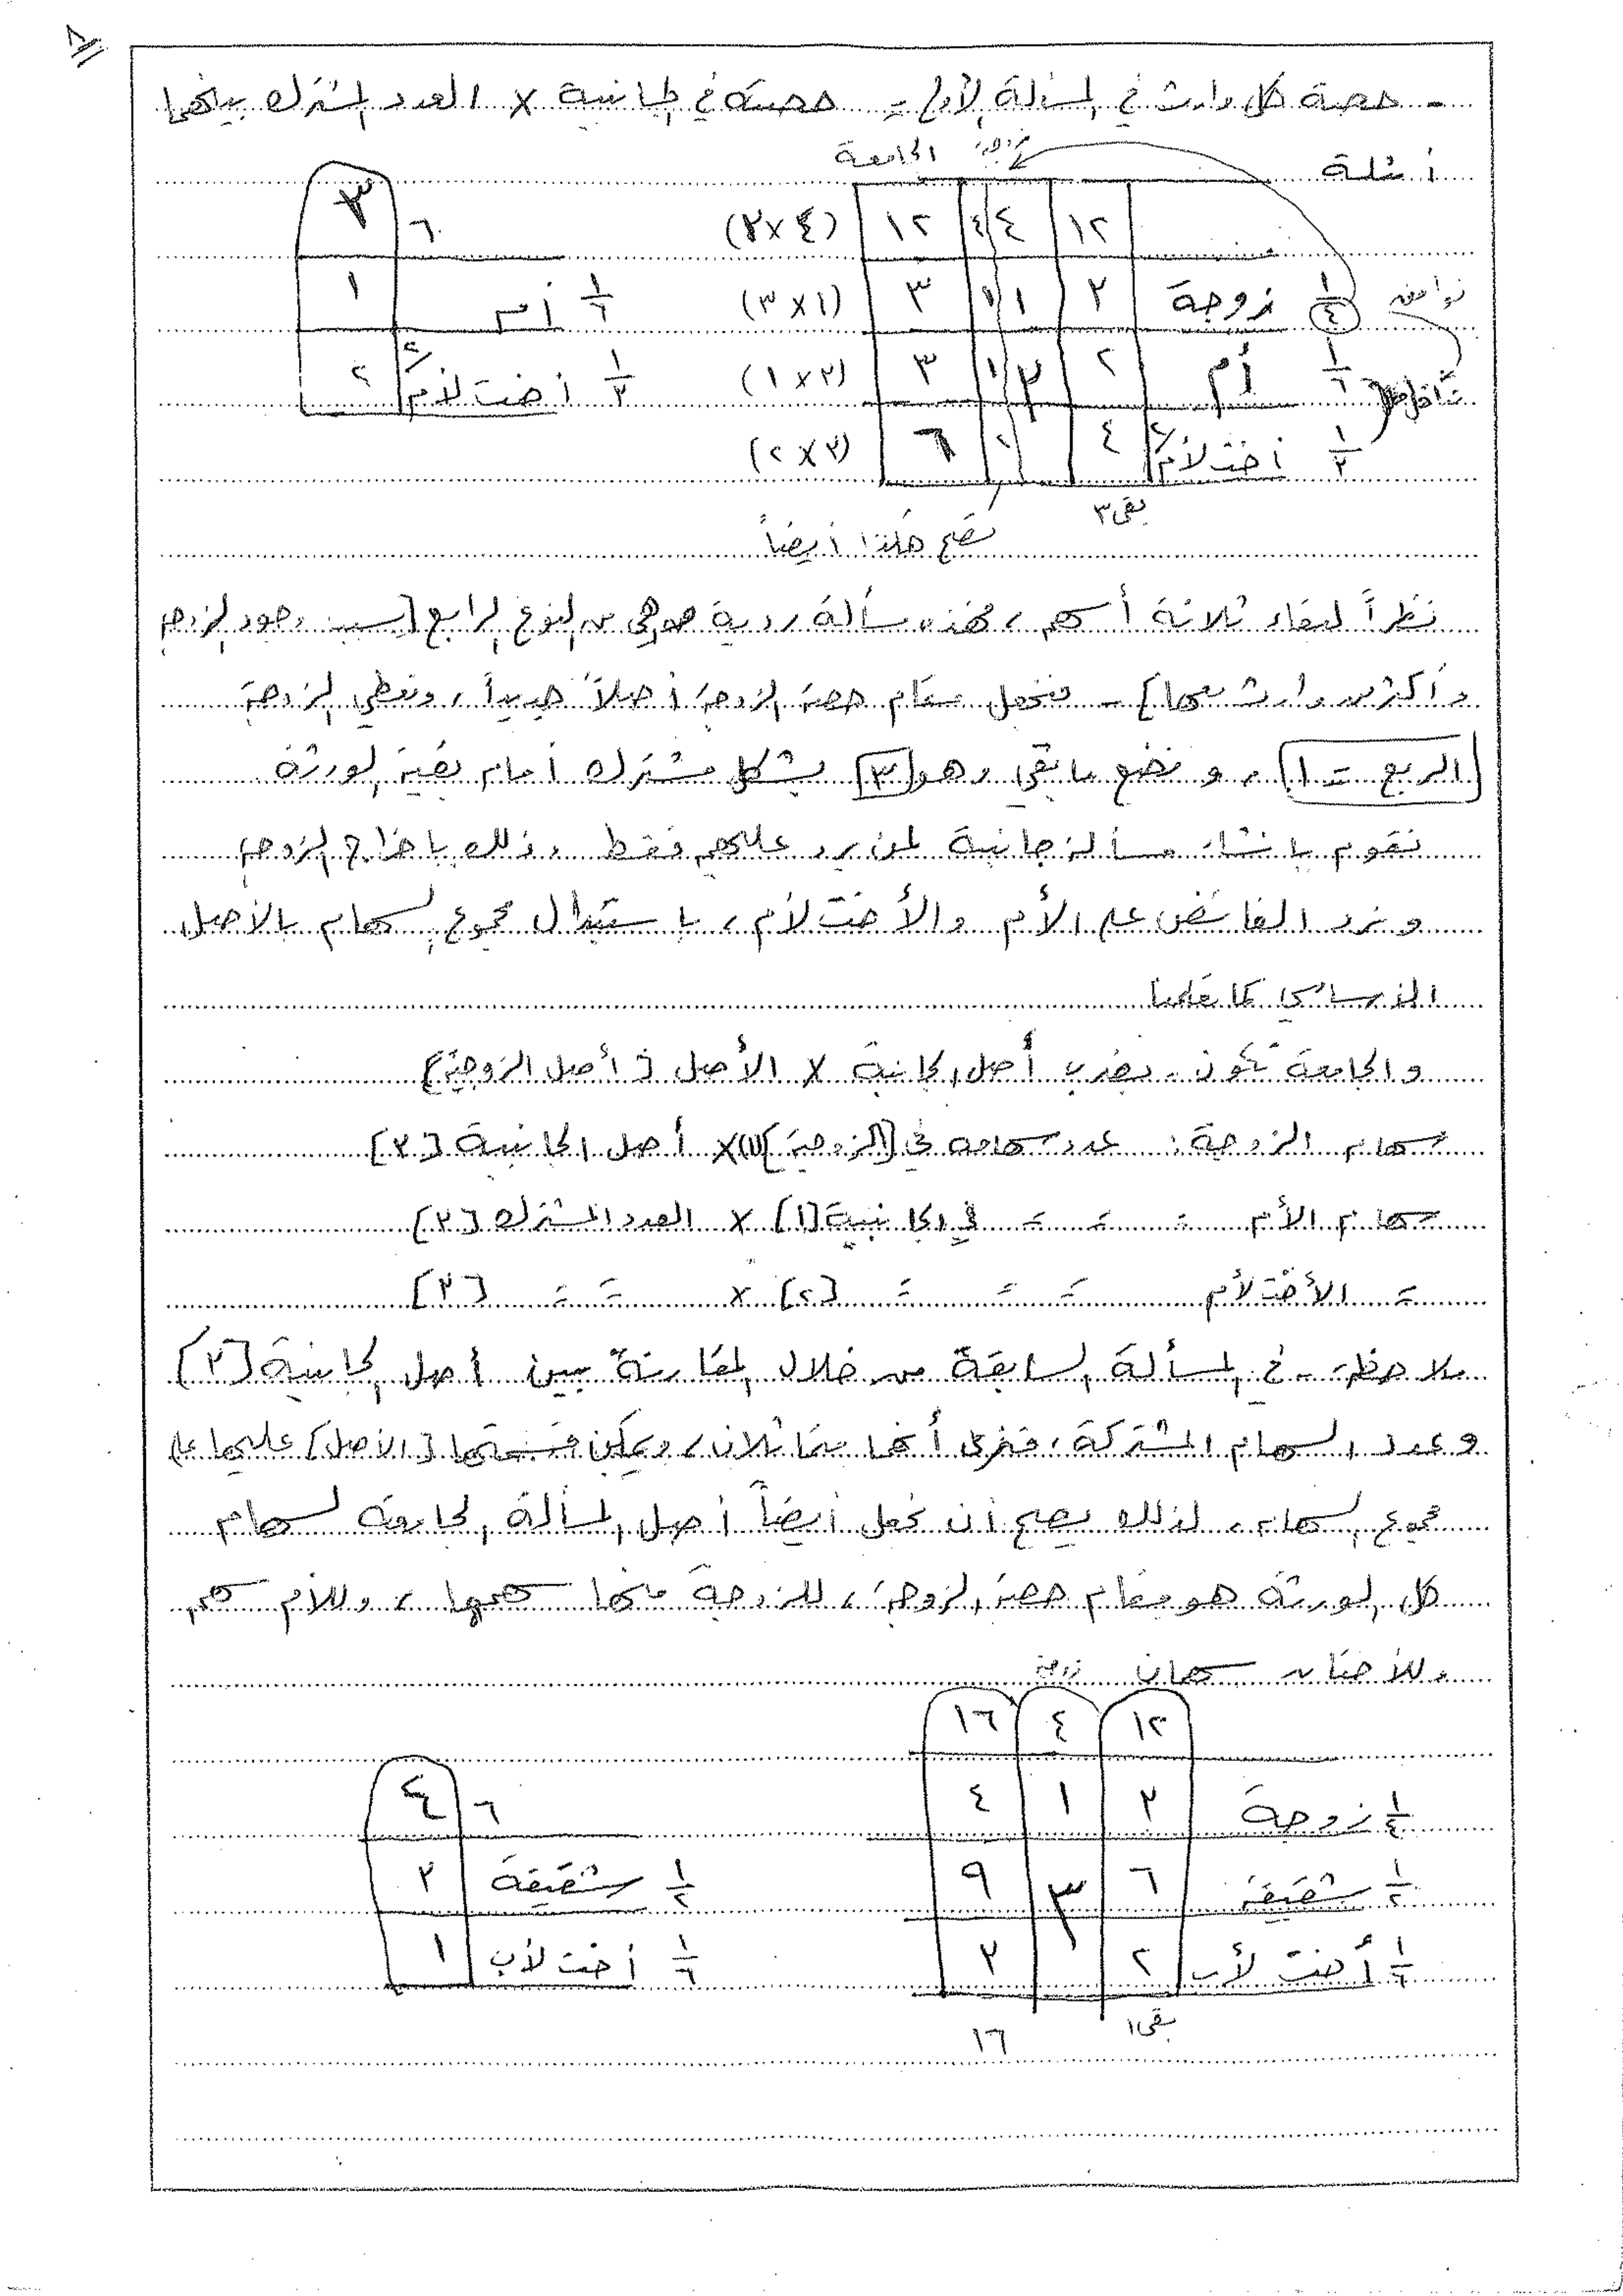 - حصة كل وارث في المسألة الأولى = حصته في الجانبية × العدد المشترك بينهما
أمثلة
زوجية الجامعة
١٢ ٤ ٤ ١٢ (٣×٤) ٦ ٣
توافق ١/٤ زوجة ٣ ١ ١ ٣ (٣×١) ١/٦ أم ١
١/٦ أم ٢ ٣ ١ ٣ (١×٣) ١/٣ أختان لأم ٢ ٢
١/٣ أختان لأم ٢ ٤ ٢ ٦ (٢×٣)
بقي ٣
تصح هكذا أيضاً
نظراً لبقاء ثلاثة أسهم، فهذه مسألة ردية وهي من النوع الرابع [بسبب وجود الزوجة
وأكثر من وارث معها] - فنجعل مقام حصة الزوجة أصلاً جديداً، ونعطي الزوجة
(الربع = ١)، ونضع ما بقي وهو (٣) بشكل مشترك أمام بقية الورثة
نقوم بإنشاء مسألة جانبية لمن يرد عليهم فقط وذلك بإخراج الزوجة
ونرد الفائض على الأم والأخت لأم، باستبدال مجموع السهام بالأصل
الأساسي كما فعلنا
والجامعة تكون بضرب أصل الجانبية × الأصل [أصل الزوجية]
سهام الزوجة: عدد سهامه في [الزوجية] (١) × أصل الجانبية [٣]
سهام الأم = = = في الجانبية [١] × العدد المشترك [٣]
= الأخت لأم = = = [٢] × = = [٣]
ملاحظة - في المسألة السابقة من خلال المقارنة بين أصل الجانبية [٣]
وعدد السهام المشتركة، فنرى أنها متماثلان، ويمكن قسمتها [الأصل] عليها على
مجموع السهام، لذلك يصح أن نجعل أيضاً أصل المسألة الجامعة لسهام
كل الورثة هو مقام حصة الزوجة، للزوجة منها سهمها، وللأم سهم
وللأختان سهمان
زوجية
١٢ ٤ ١٦
١/٤ زوجة ٣ ١ ٤ ٦ ٤
١/٢ شقيقة ٦ ٣ ٩ ١/٢ شقيقة ٣
١/٦ أخت لأب ٢ ٣ ١/٦ أخت لأب ١
بقي ١ ١٦